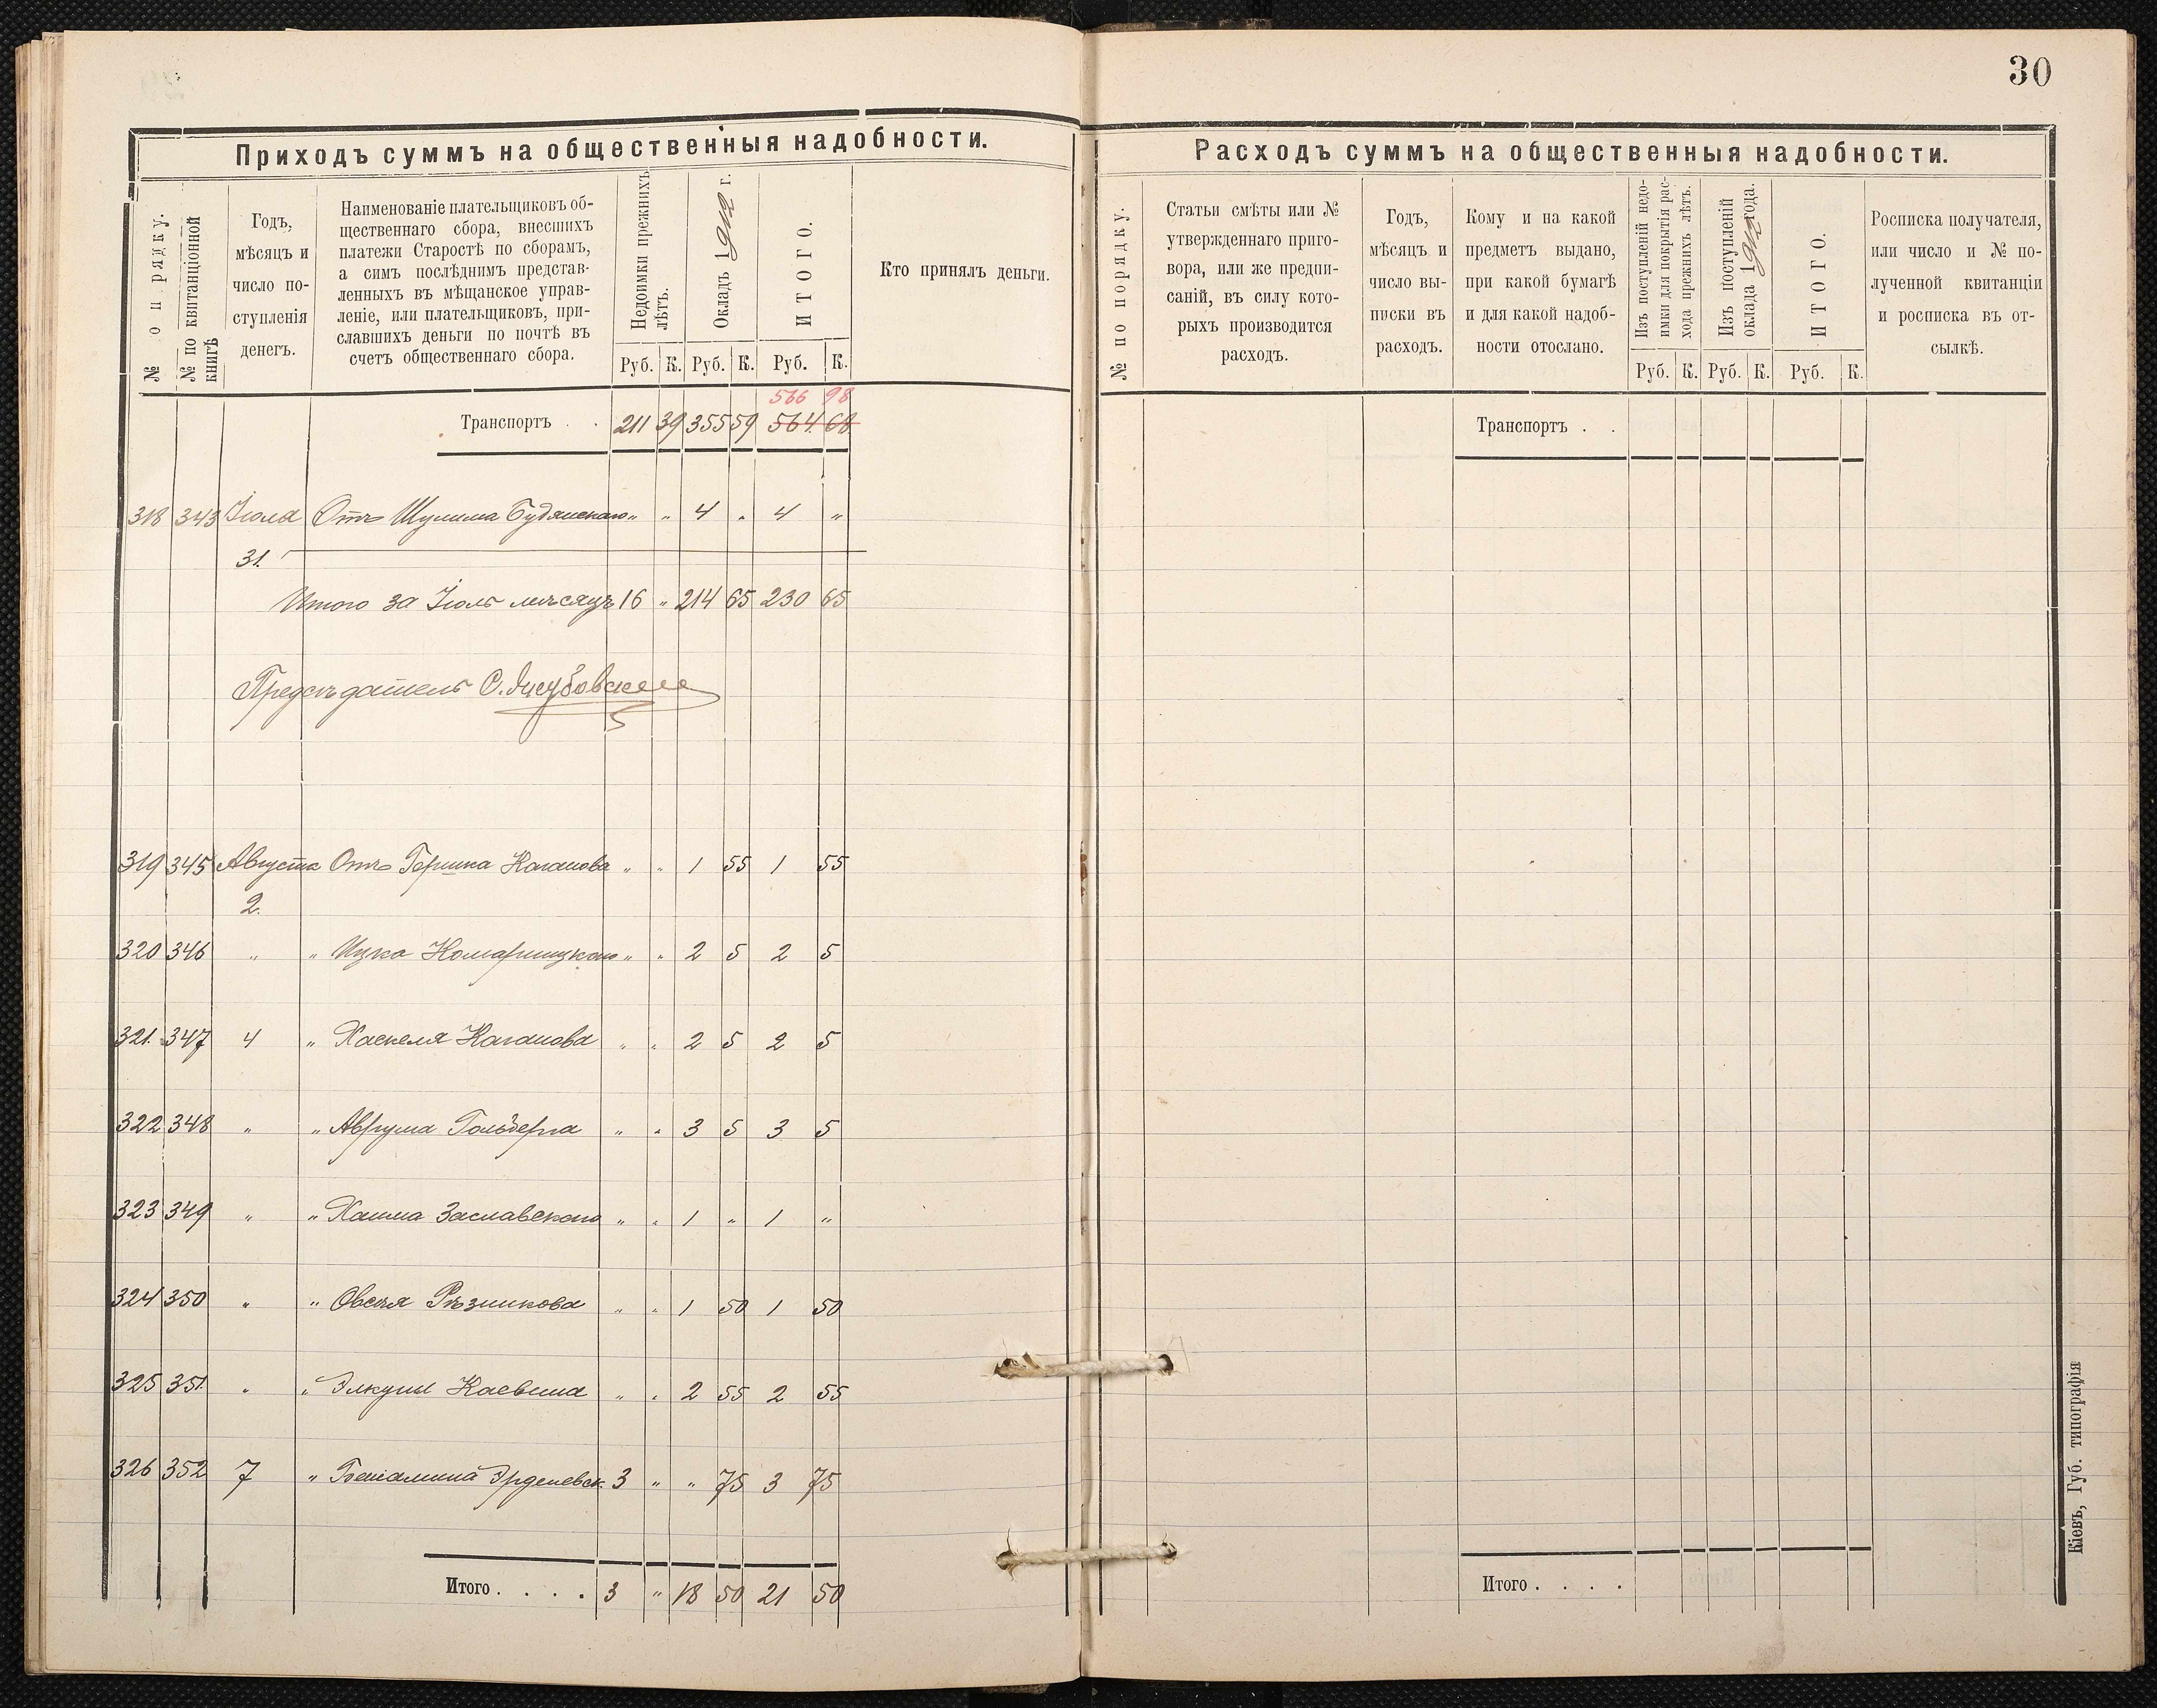 30
Приходъ суммъ на общественныя надобности.
№ по рядку.
№ по квитанціонной книгѣ
Годъ, мѣсяцъ и число поступленія денегъ.
Наименованіе плательщиковъ об-
щественнаго сбора, внесшихъ
платежи Старостѣ по сборамъ,
а симъ послѣднимъ представ-
ленныхъ въ мѣщанское управ-
леніе, или плательщиковъ, при-
славшихъ деньги по почтѣ въ
счетъ общественнаго сбора.
Недоимки прежнихъ лѣтъ.
Окладъ 1912 г.
ИТОГО.
Кто принялъ деньги.
Руб. К. Руб. К. Руб. К.
566 98
Транспортъ . . 211 39 355 59 564. 68.
318 343 Іюля Отъ Шулима Будянскаго " " 4 " 4 "
31.
Итого за Іюль мѣсяцъ 16 " 214 65 230 65
Предсѣдатель С.
319 345 Августа Отъ Гершка Каганова " " 1 55 1 55
2.
320 346 " " Ицка Комарницкаго " " 2 5 2 5
321. 347 4 " Хаскеля Каганова " " 2 5 2 5
322 348 " " Аврума " " 3 5 3 5
323 349 " " Хаима Заславскаго " " 1 " 1 "
324 350 " " Овсѣя Рѣзникова " " 1 50 1 50
325 351. " " Элкуны Каевина " " 2 55 2 55
326 352 7 " Беніамина Эрделевск. 3 " " 75 3 75
Итого . . . . 3 " 18 50 21 50
Расходъ суммъ на общественныя надобности.
№ по порядку.
Статьи смѣты или №
утвержденнаго приго-
вора, или же предпи-
саній, въ силу кото-
рыхъ производится
расходъ.
Годъ,
мѣсяцъ и
число вы-
писки въ
расходъ.
Кому и на какой
предметъ выдано,
при какой бумагѣ
и для какой надоб-
ности отослано.
Изъ поступленій недо-
имки для покрытія рас-
хода прежнихъ лѣтъ.
Изъ поступленій
оклада 1912 года.
ИТОГО.
Росписка получателя,
или число и № по-
лученной квитанціи
и росписка въ от-
сылкѣ.
Руб. К. Руб. К. Руб. К.
Транспортъ . .
Итого . . . .
Кіевъ, Губ. типографія